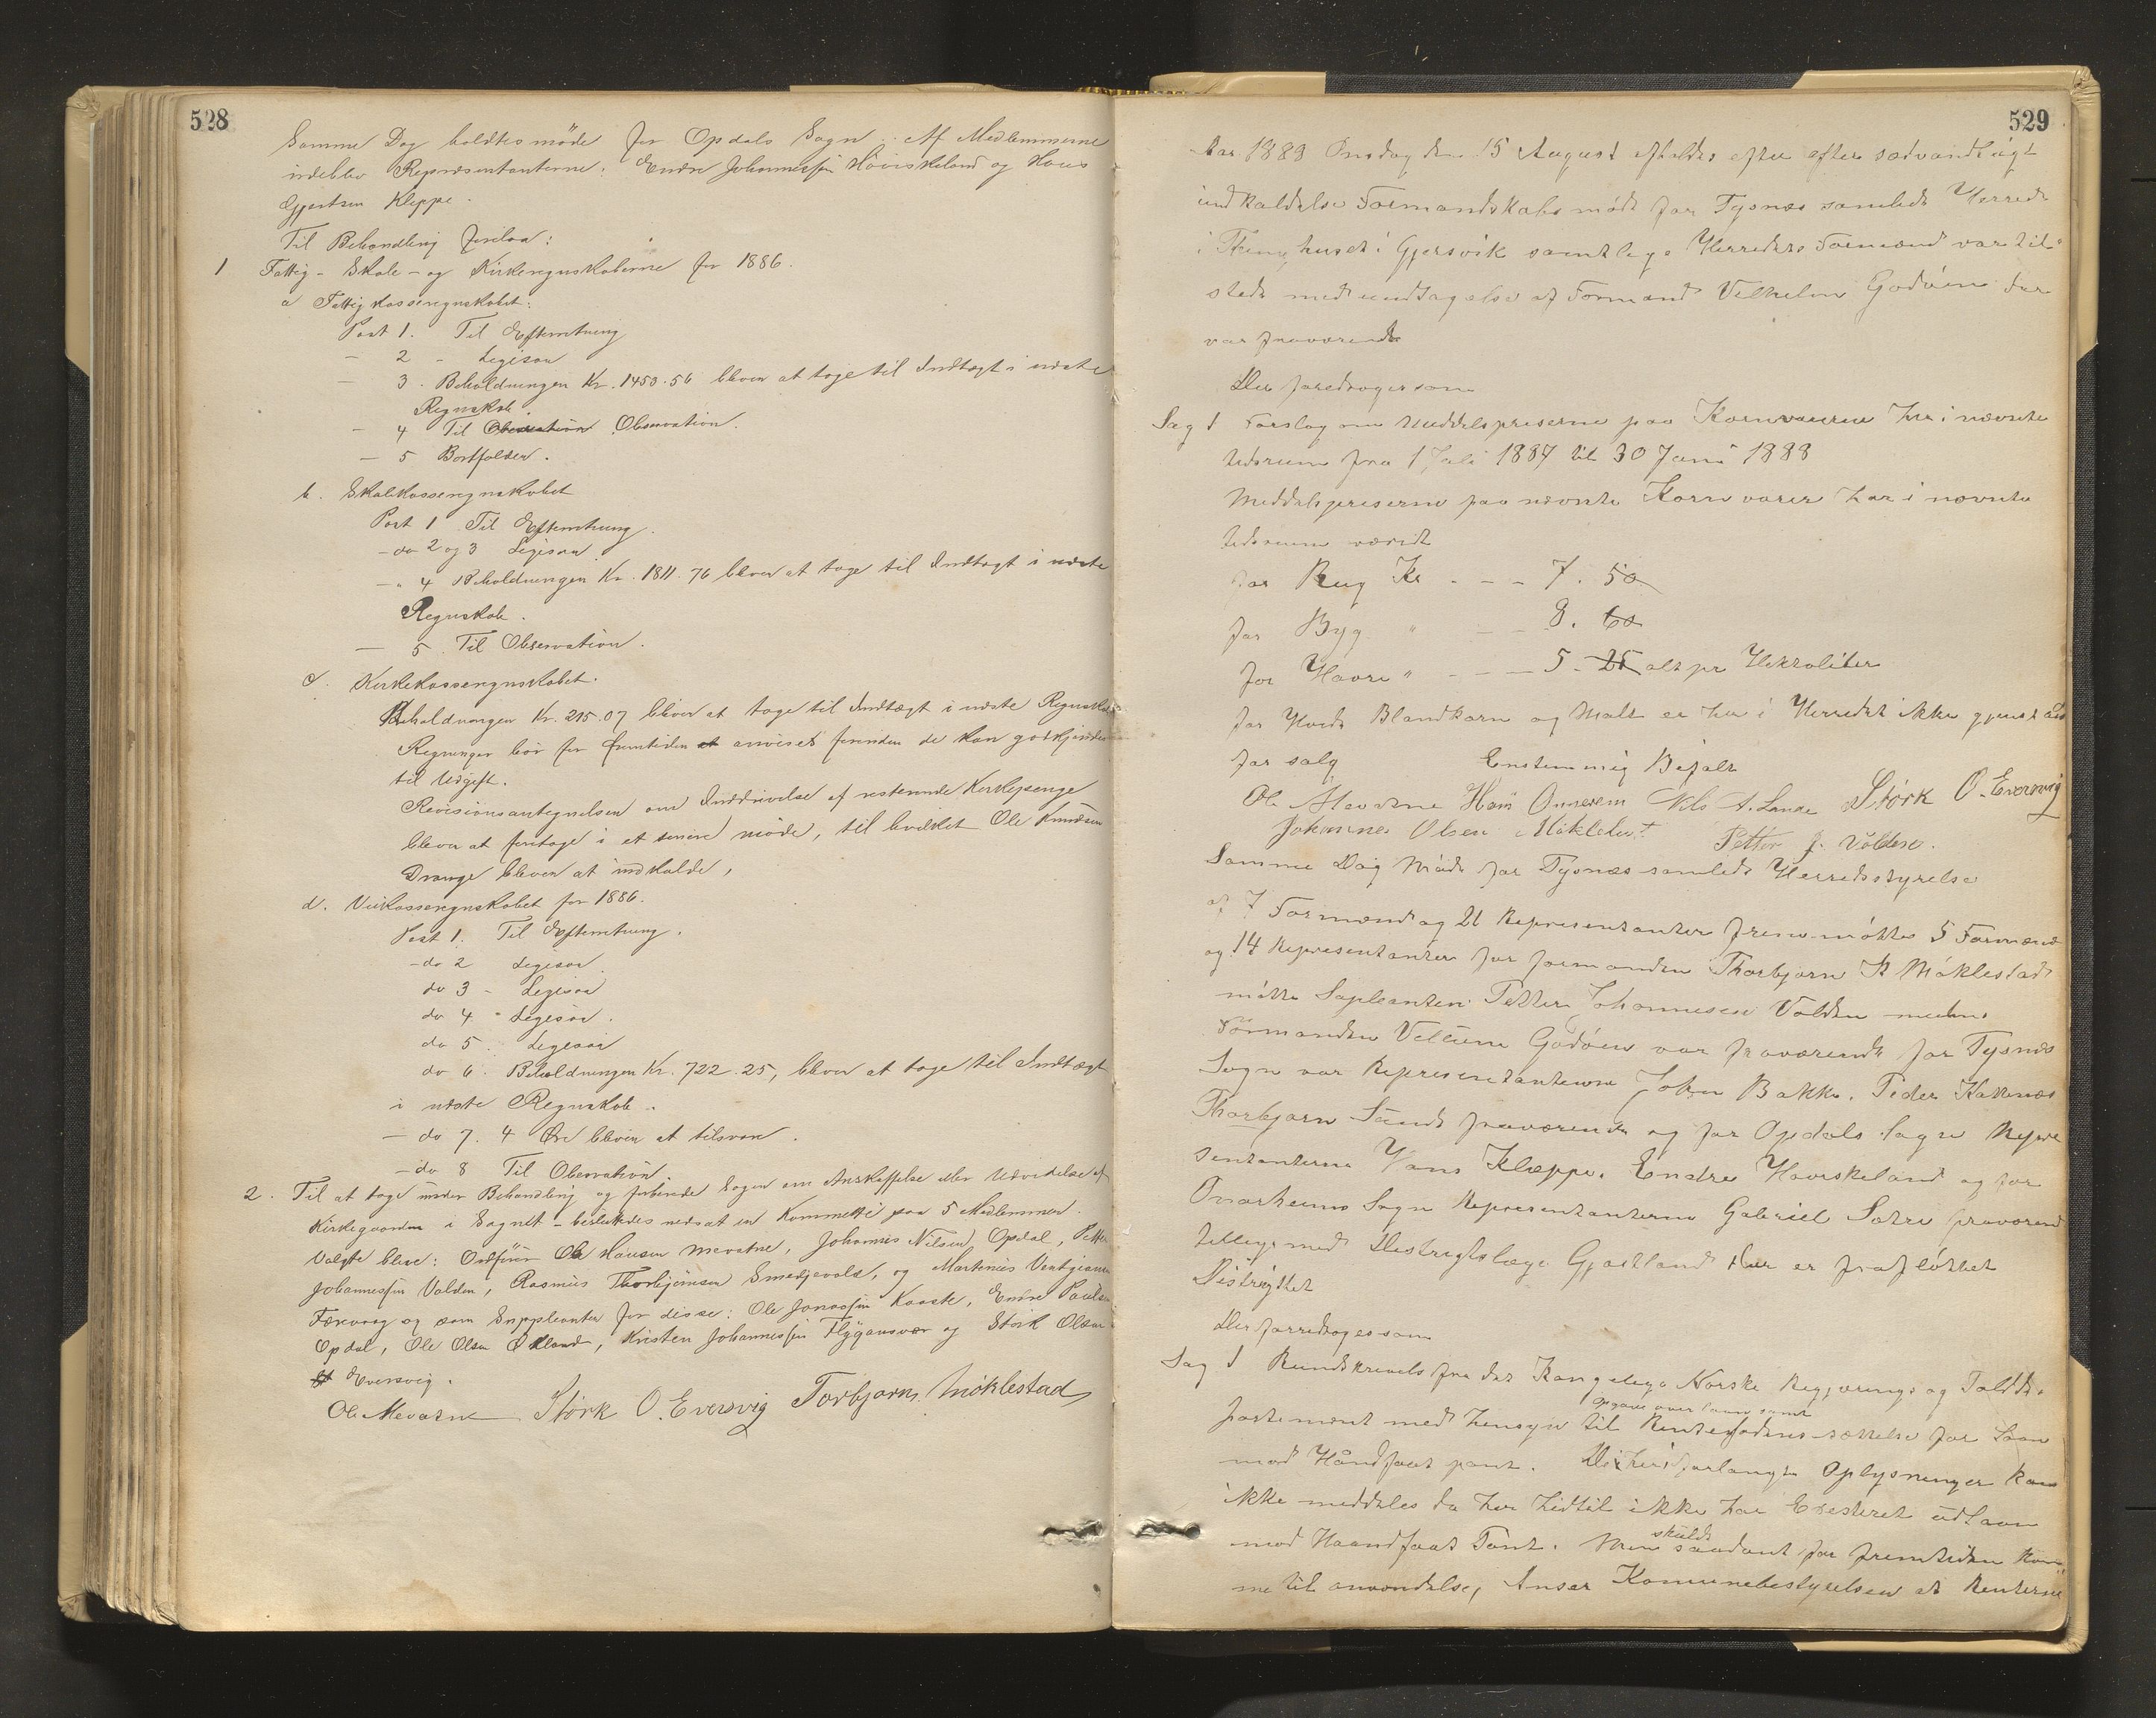 528
Samme Dag holdtes møde for Opdals Sogn. Af Medlemmerne
udeblev Repræsentanterne: Endre Johannessen Hovirskeland og Hans
Gjertsen Kleppe.
Til Behandling forelaa:
1 Fattig- Skole- og Kirkeregnskaberne for 1886.
a Fattigkasseregnskabet:
Post 1. Til Efterretning
— 2 - Ligesaa
— 3. Beholdningen Kr. 1450.56 bliver at tage til Indtægt i næste
Regnskab.
— 4 Til Observation Observation.
— 5 Bortfalder.
b. Skolekasseregnskabet
Post 1 Til Efterretning.
- do 2 og 3 Ligesaa.
- " 4 Beholdningen Kr. 1811.76 bliver at tage til Indtægt i næste
Regnskab.
— 5. Til Observation.
c. Kirkekasseregnskabet.
Beholdningen Kr. 215.07 bliver at tage til Indtægt i næste Regnskab
Regninger bør for fremtiden at anvises forinden de kan godkjendes
til Udgift.
Revisionsantegnelsen om Inddrivelse af resterende Kirkepenge
bliver at foretage i et senere møde, til hvilket Ole Knudsen
Drange bliver at indkalde,
d. Veikasseregnskabet for 1886.
Post 1. Til Efterretning.
- do 2 Ligesaa
do 3 - Ligesaa
do 4 - Ligesaa.
do 5. Ligesaa
do 6. Beholdningen Kr. 722.25, bliver at tage til Indtægt
i næste Regnskab.
— do 7. 4 Øre bliver at tilsvare.
- do 8 Til Observation
2. Til at tage under Behandling og forberede Sagen om Anskaffelse eller Udvidelse af
Kirkegaarden i Sognet - besluttedes nedsat en Kommitte paa 5 Medlemmer.
Valgte bleve: Ordfører Ole Hansen Mevatne, Johannes Nilsen Opdal, Petter
Johannessen Valden, Rasmus Thorbjørnsen Smedjevold, og Martinus
Færevaag og som Suppleanter for disse: Ole Jonassen Kaaste, Endre Paulsen
Opdal, Ole Olsen Økland, Kristen Johannessen Flygansvær og Størk Olsen
Eversvig.
Ole Mevatne Størk O. Eversvig Torbjørn Møklestad
529
Aar 1888 Onsdag den 15 August afholdes efter efter sædvandligt
indkaldelse Formandskabs møde for Tysnes samlede Herrede
i Thinghuset i Gjersvik samtlege Herredets Formænd var til
stede med undtagelse af Formand Vilhelm Godøen der
var fraværende
Der foredroges som
Sag 1 Forslag om Middelspriserne paa Kornvarerne her i nævnte
tidsrum fra 1 Juli 1887 til 30 Juni 1888
Meddelspriserne paa nævnte Korn varer har i nævnte
tidsrum væridt
for Rug Kr - - - 7. 50
for Byg " - - 8. 60
for Havre " - - - 5. 25 alt pr Hektoliter
for Hvede Blandkorn og Malt er her i Herredet ikke gjenstand
for salg Enstemmig Bifalt
Ole Mevatne Hans Onnerem Nils A. Lande Størk O. Eversvig
Johannes Olsen Møklebust Petter J. Volden.
Samme Dag Møde for Tysnes samlede Herredsstyrelse
af 7 Formænd og 21 Representanter frem møtte 5 Formænd
og 14 Representanter for formanden Thorbjørn St Møklestad
møtte Supleanten Petter Johannesen Volden mens
Formanden Vellum Godøen var fraværende for Tysnes
Sogn var Representanterne John Bakke. Peder Kattnes
Thorbjørn Sunde fraværende og for Opdals Sogn Repre
sentanterne Hans Klæppe. Endre Hovrskeland og for
Onarheims Sogn Representanterne Gabriel Sætre fraværende
tillege med Destrigtslæge Gjestland der er frafløttet
Distrigtet
Der forredroges som
Sag 1 Rundskrivels fra det Kongelege Norske Regjerings og Told De
opgave over laan samt
partement med hensyn til Rentefodens sættelse for Laan
mod Håndfaat pant. De her forlangte Oplysninger kan
ikke meddeles da her hidtil ikke har Eksisteret udlaan
mod Haandfaat Pant. Men skulde saadant for fremtiden kom
me til anvendelse, Anser Komunebestyrelsen at Renterne